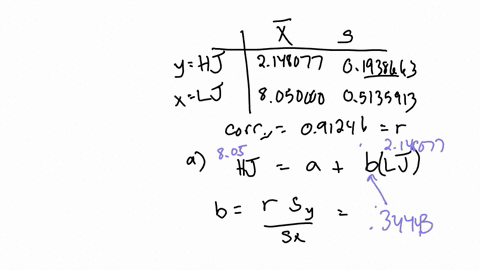 X̄ s
y = HJ 2.148077 0.1938663
x = LJ 8.05000 0.5135913
corr = 0.91246 = r
8.05 2.148077
a) HJ = a + b(LJ)
b = r Sy / Sx = .34443